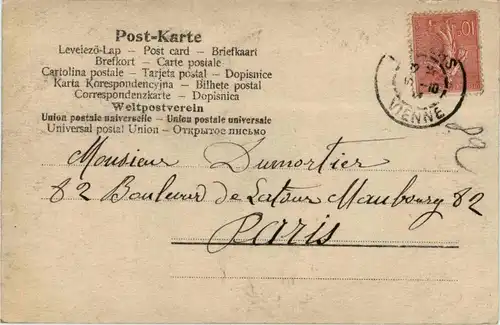 Post-Karte
Levelező-Lap – Post card – Briefkaart
Brefkort – Carte postale
Cartolina postale – Tarjeta postal – Dopisnice
Karta Korespondencyjna – Bilhete postal
Correspondenzkarte – Dopisnica
Weltpostverein
Union postale universelle – Union postale universale
Universal postal Union – Открытое письмо
10
VIENNE
Monsieur Dumortier
82 Boulevard de Latour Maubourg 82
Paris